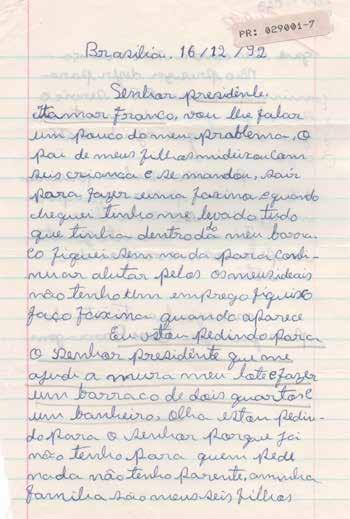 PR: 029001-7
Brasília, 16/12/92
Senhor presidente
Itamar Franco, vou lhe falar
um pouco do meu problema, O
pai de meus filhos mideixou com
seis criancá e se mandou, saír
para fazer uma faxina e quando
cheguei tinho me levado tudo
que tinha dentro do meu barra
co fiquei sem nada para conti-
nuar alutar pelos os meus ideais
não tenho um emprego fiquixo
faço faixina quando aparece
Eu estou pedindo para
O senhor presidente que me
ajudi a mura meu lote e fazer
um barraco de dois quartos e
um banheiro, Olha estou pedin-
do para o senhor porque já
não tenho para quem pede
nada não tenho parente, aminha
família são meus seis filhos